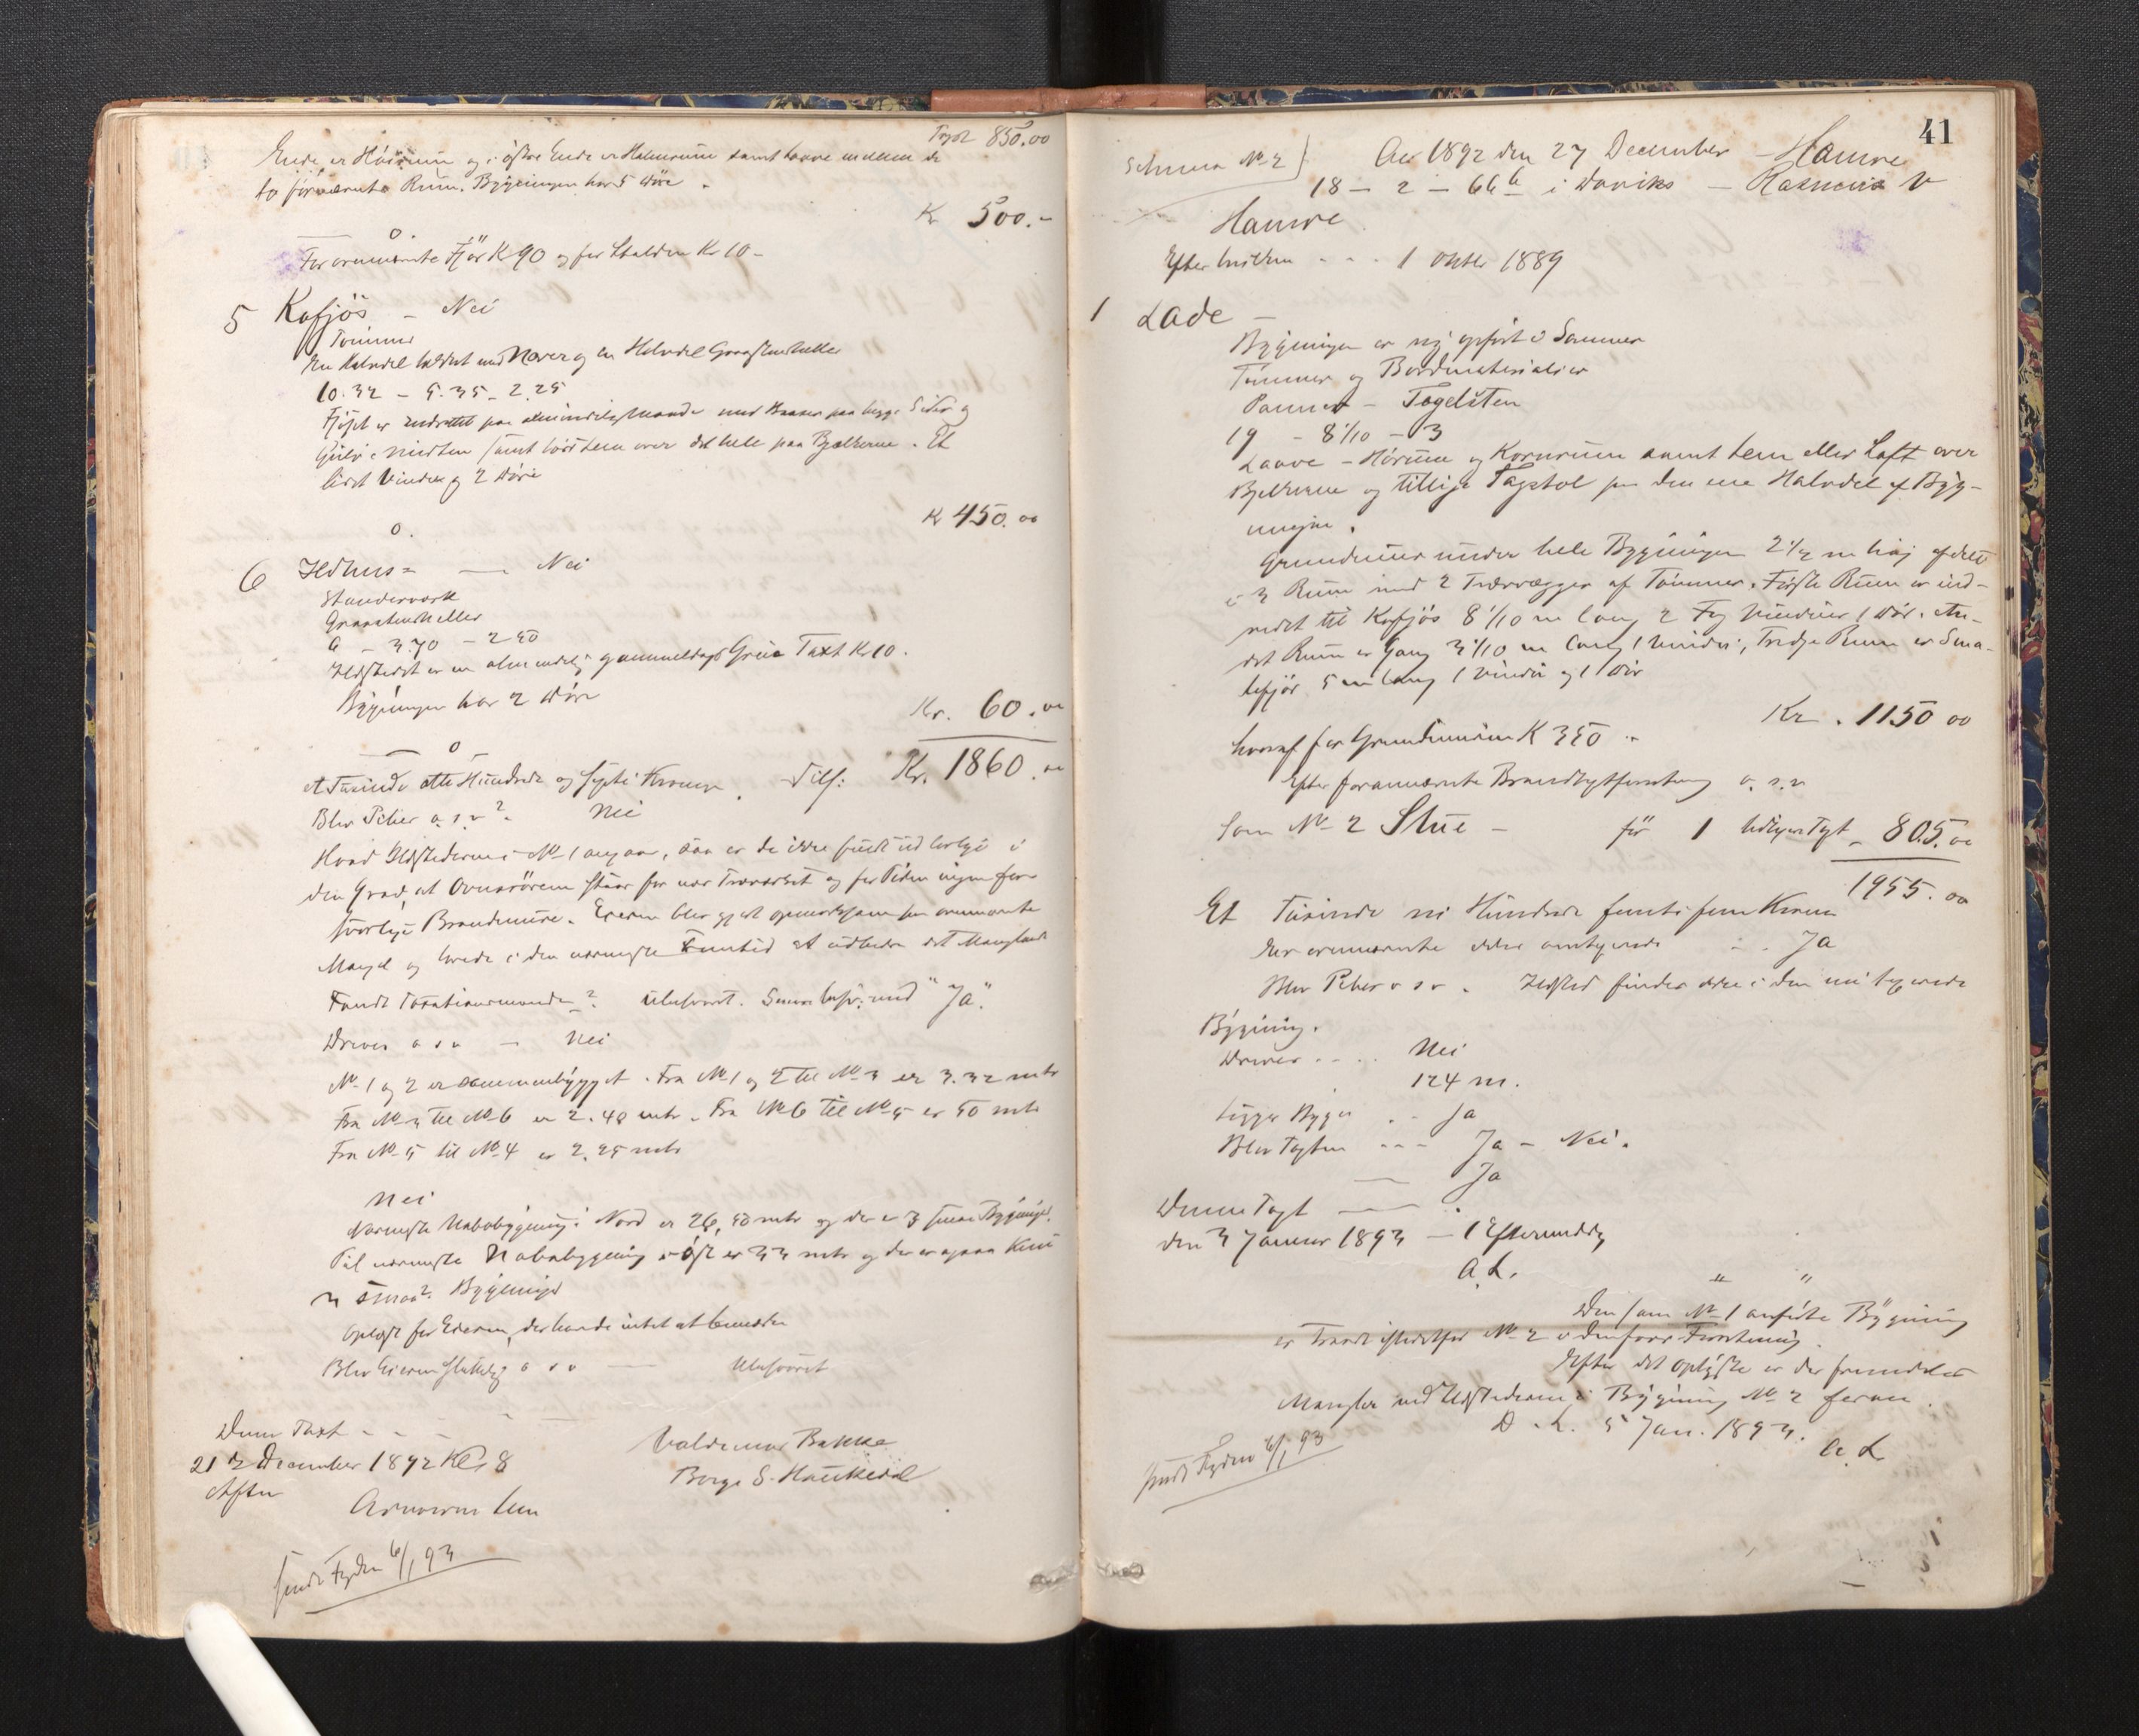 Taxt 850.00
Ende er Hörum og i østre Ende er Halmrum samt Laave mellem de
to förnævnte Rum. Bygningen har 5 Döre.
Kr 500.-
o.
For ovennævnte Fjös K 90 og for Stalden Kr 10 -
5 Kofjös - Nei
Tömmer
En Halvdel tækket med Næver og en Halvdel Graastenheller
10.32 - 5.35 - 2.25
Fjöset er indrettet paa almindelig Maade med Baase paa begge Sider og
Gulv i Midten samt Lös Lem over det hele paa Bjælkerne. Et
lidet Vindu og 2 Döre
Kr 450.00
o.
6 Ildhus = — Nei
Standerværk
Graastenheller
6 - 3.70 - 2.50
Ildstedet er en almindelig gammeldags Grue Taxt Kr 10.
Bygningen har 2 Döre
Kr. 60.00
o
et Tusinde otte Hundrede og sexti Kroner. Tils: Kr. 1860.00
Blev Piber o.s.v? Nei
Hvad Ildstederne i No 1 angaar, saa er de ikke fundt ud
den Grad, at Ovnsrörene staar for nær Træværket og for Tiden ingen for-
svarlige Brandmure. Eieren blev gjort opmærksom paa ovennævnte
Mangel og lovede i den nærmeste Fremtid at udbedre det Manglende
Fandt Taxationsmænden? Ubesvaret. Senere besv: med "Ja".
Drives o s v - Nei
No 1 og 2 er sammenbygget. Fra No 1 og 2 til No 3 er 3.32 mtr
Fra No 3 til No 6 er 2.48 mtr. Fra No 6 til No 5 er 50 mtr
Fra No 5 til No 4 er 2.25 mtr
Nei
Nærmeste Nabobygning i Nord er 26,50 mtr og der er 3 smaa Bygninger.
Til nærmeste Nabobygning i Öst er 33 mtr og der er ogsaa kun
3 smaa Bygninger
Oplæst for Eieren, der havde intet at bemærke
Blev Eieren o s v — Ubesvaret
Denne Taxt - - -
21 de December 1892 Kl 8
Aften
Valdemar Bakke
Borge S. Haukedal
sendt Fyrden 6/1 93
41
Schema No 2 } Aar 1892 den 27 December - Hamre
18 - 2 - 66 b i Daviks - Rasmus
Hamre
Efter hvilken - - - 1 Oktbr 1889
1 Lade -
Bygningen er ny opfört i Sommer
Tömmer og Bordmaterialier
Panner - Tagelsten
19 - 8 1/10 - 3
Laave - Hörum og Kornrum samt Lem eller Loft over
Bjelkerne og tillige Tagstol paa den ene Halvdel af Byg-
ningen.
Grundmur under hele Bygningen 2 1/2 m höi afdelt
i 3 Rum med 2 Tværvægger af Tömmer. Förste Rum er ind-
redet til Kofjös 8 1/10 m lang 2 Fag Vinduer 1 Dör. An-
det Rum er Gang 3 1/10 m lang 1 Vindu; Tredje Rum er Sma-
lefjös 5 m lang 1 Vindu og 1 Dör
Kr. 1150 00
hvoraf for Grundmuren K 350 -
Efter forannævnte Brandtaxtforretning o.s.v
Som No 2 Stue - för 1 tidligere Taxt - 805.00
1955.00
Et Tusinde ni Hundrede femti fem Kroner
Er ovennævnte - . Ja
Blev Piber o s v. Ildsted findes ikke i den ni taxerede
Bygning.
Drives . - . . Nei
124 m.
Ligger Bygn . - Ja
Blev Taxten - - - Ja - Nei.
— Ja
Denne Taxt — .
den 3 Januar 1893 - 1 Eftermiddag
A.L.
" "
Den som No 1 anförte Bygning
er traadt istedetfor No 2 i den forr Forretning.
Efter det oplyste er der fremdeles
Mangler ved Ildstederne i Bygning No 2
D.L. 5 Jan. 1893.
A.L
sendt Fyrden 6/1 93